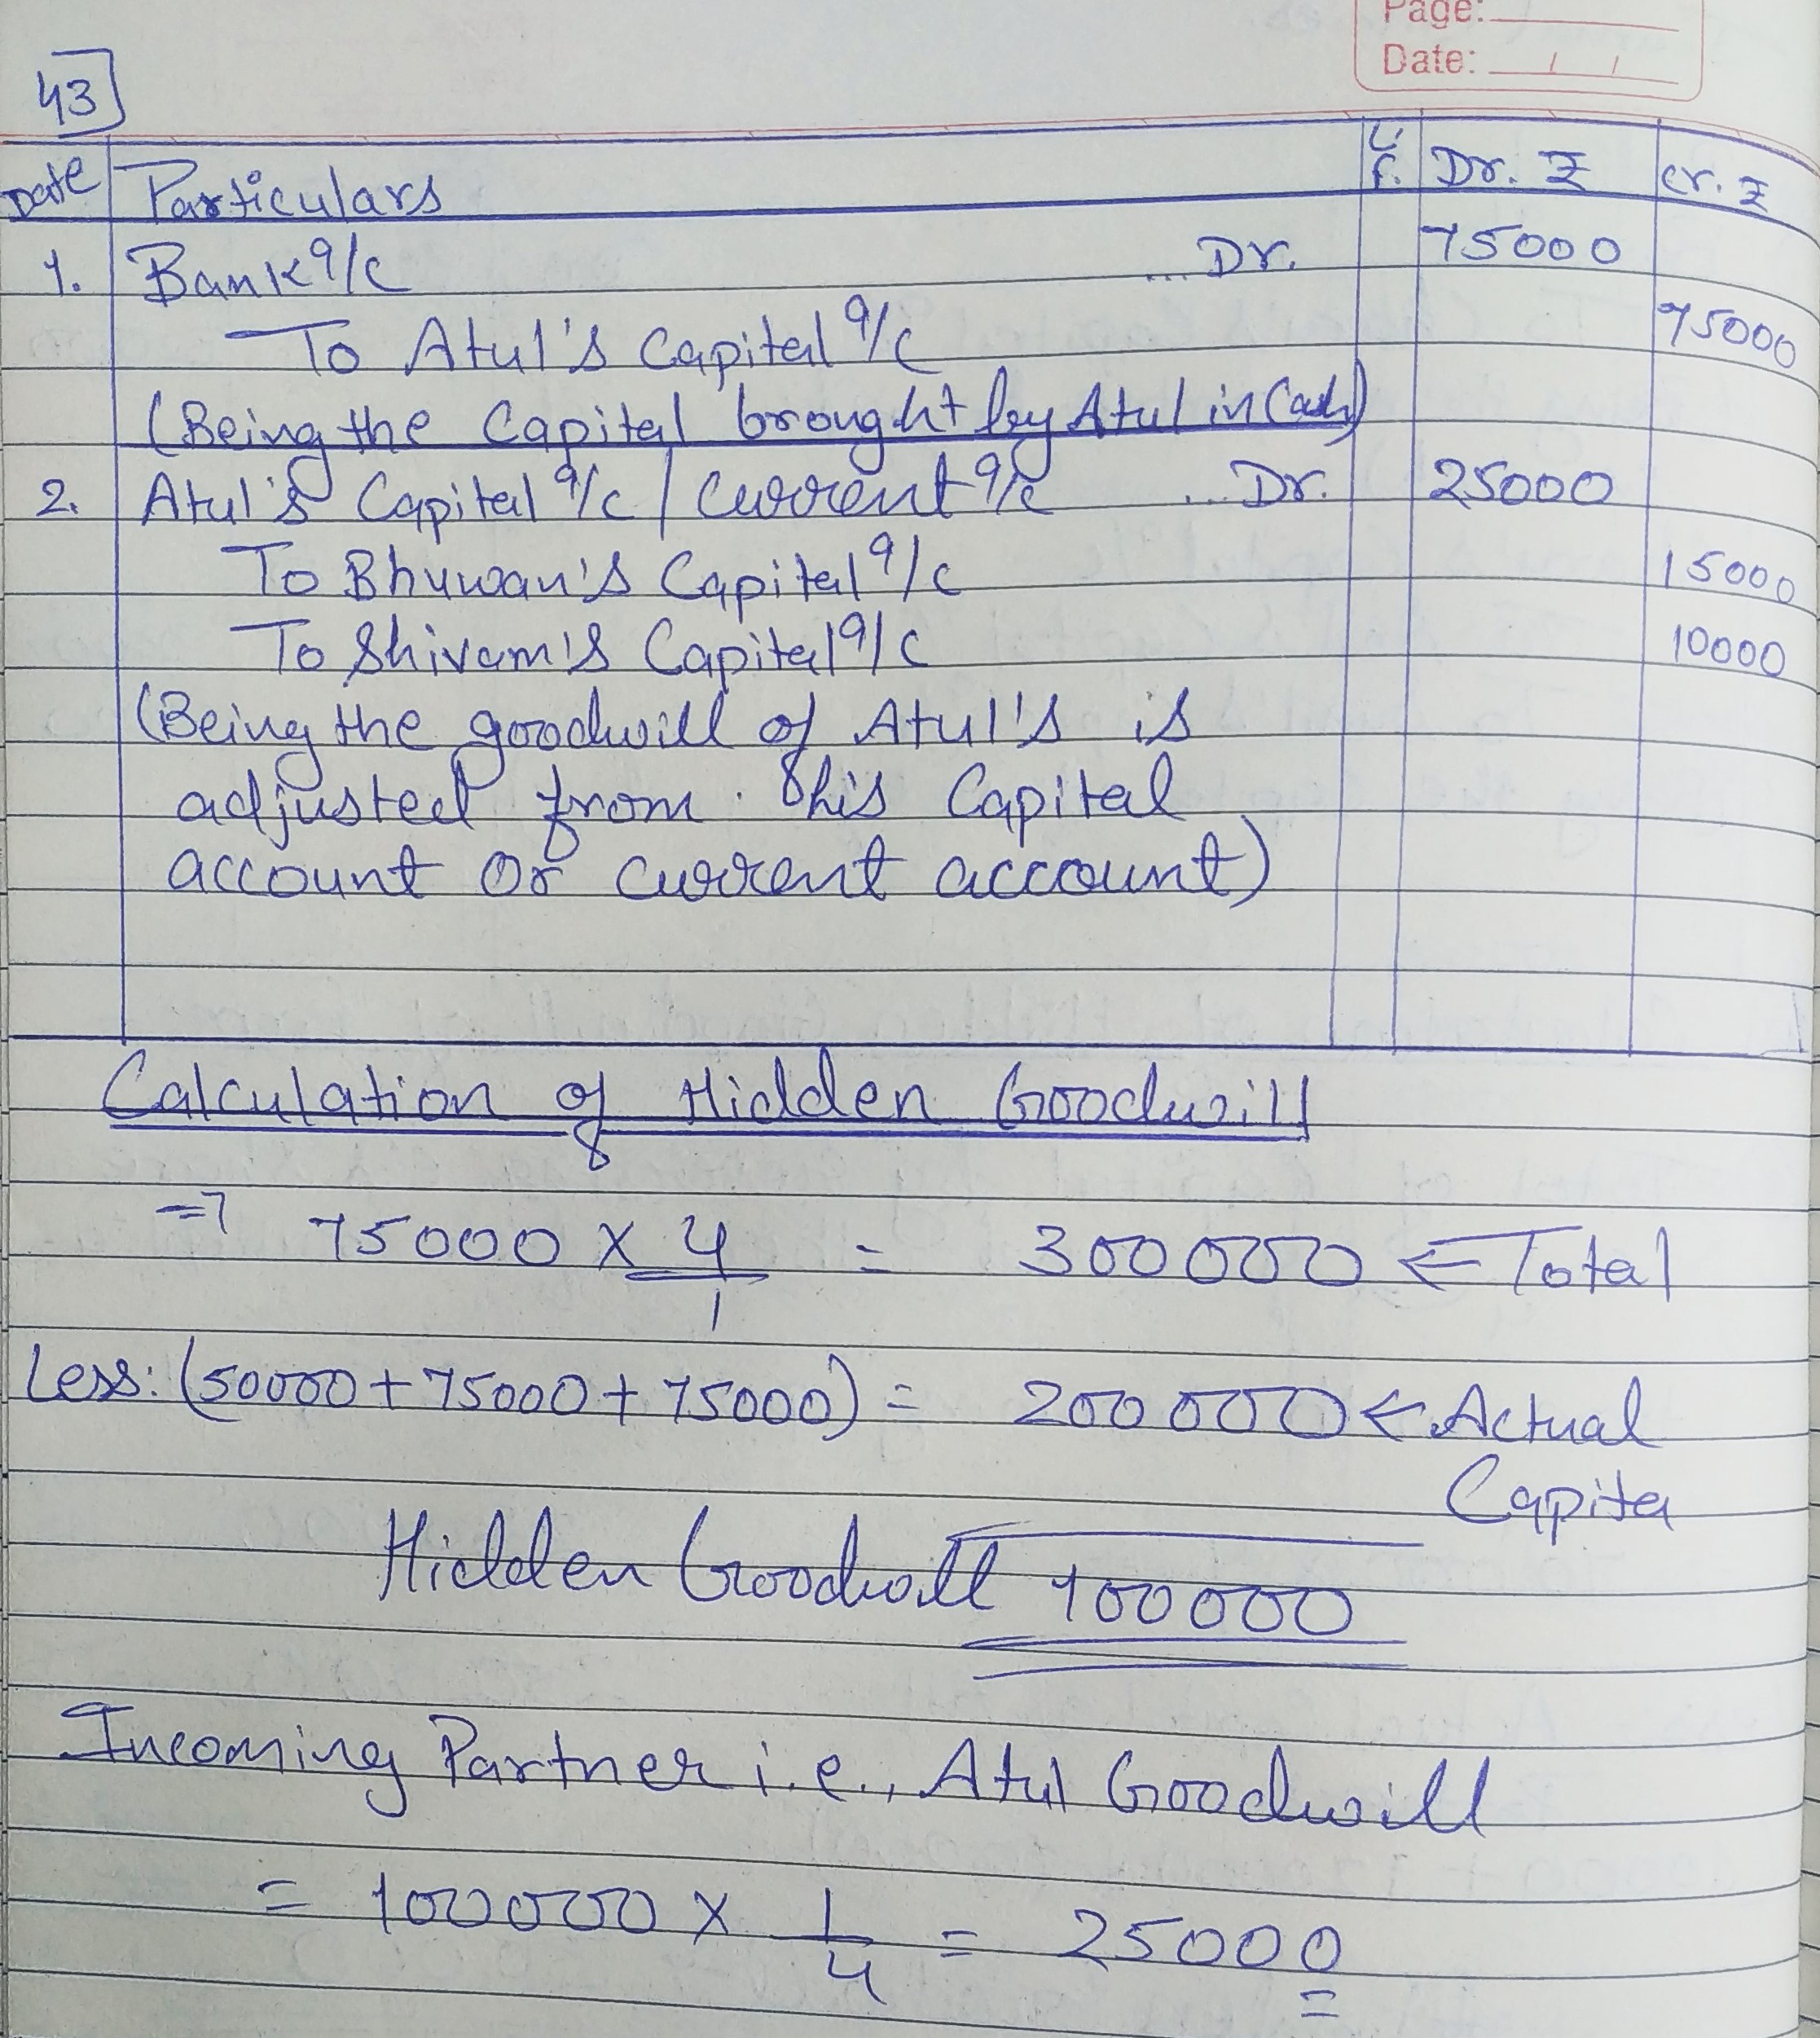 Page:
Date: / /
43
Date Particulars L.F. Dr. ₹ Cr. ₹
1. Bank a/c ... Dr. 75000
To Atul's Capital a/c 75000
(Being the Capital brought by Atul in Cash)
2. Atul's Capital a/c / Current a/c ... Dr. 25000
To Bhuwan's Capital a/c 15000
To Shivam's Capital a/c 10000
(Being the goodwill of Atul's is
adjusted from his Capital
account or current account)
Calculation of Hidden Goodwill
⇒ 75000 × 4/1 = 300000 ← Total
Less: (50000 + 75000 + 75000) = 200000 ← Actual
Capital
Hidden Goodwill 100000
Incoming Partner i.e., Atul Goodwill
= 100000 × 1/4 = 25000